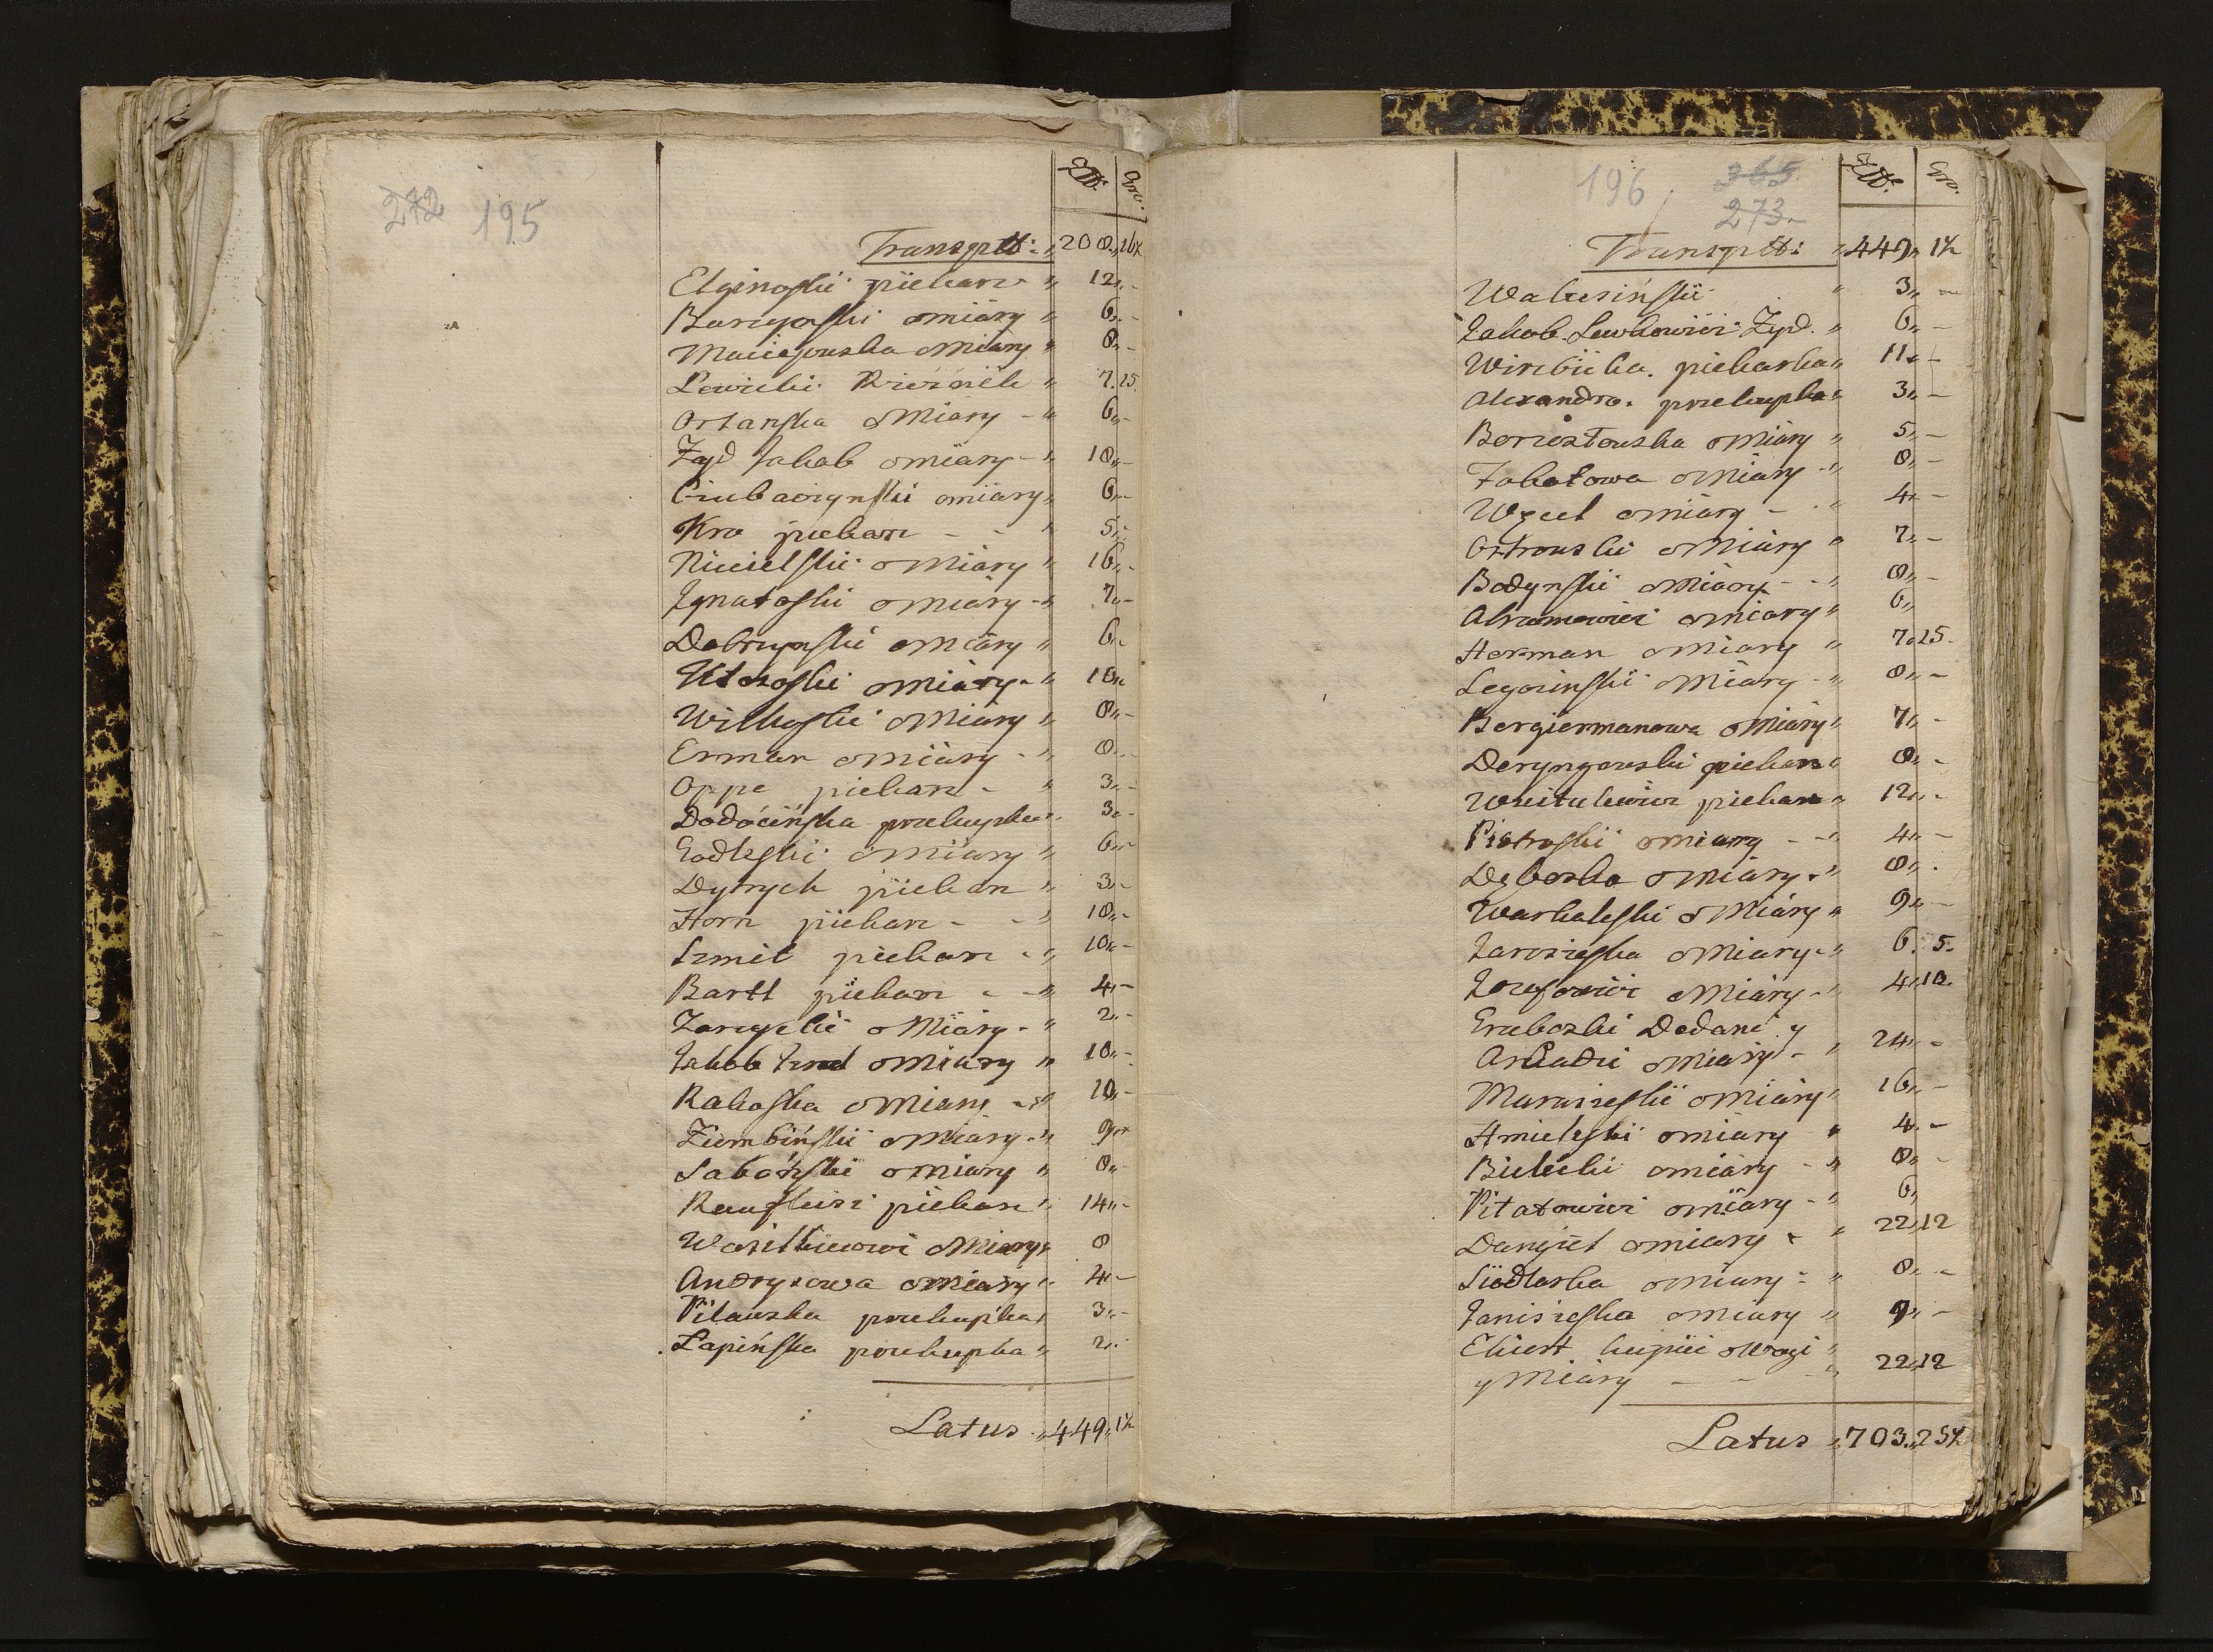 272 195
Złł. Gro.
Transprtt: „ 208„ 16½
Elginoski piekarz „ 12„ -
Barcyński omiary „ 6„ -
Macieiouska omiary „ 8„ -
Lewicki Rzeznik „ 7. 15
Ostanska omiary - „ 6„ -
Zyd Jakob omiary - „ 18„ -
Ciubaczynski omiary „ 6„ -
Kro piekarz - - „ 5„ -
Nicielski omiary „ 16„ -
Ignatoski omiary - „ 7„ -
Dobrzynski omiary „ 6„
omiary - „ 18„
Wilkoski omiary „ 8„ -
Erman omiary - „ 8„ -
Oppe piekarz - „ 3„ -
przekupka „ 3„ -
Godleski omiary „ 6„ -
Dytrych piekarz „ 3„ -
Horn piekarz - - „ 18„ -
Szmit piekarz - „ 10„ -
Bartl piekarz - - „ 4„ -
Zarzycki omiary - „ 2„ -
Jakob omiary „ 18„ -
Rakoska omiary - „ 18„ -
Ziembiński omiary - „ 9„
omiary „ 8„ -
piekarz „ 14„ -
omiary „ 8
Andrysowa omiary „ 4„ -
Pilauska przekupka „ 3„ -
Łapińska przekupka „ 2„ -
Latus „ 449„ 1½
196 365
273
Złł. Gro.
Transprtt: „ 449„ 1½
Walusiński „ 3„ -
Jakob Lewkowicz Zyd. „ 6„ -
Wirzbicka piekarka „ 11„ -
Alexandra przekupka „ 3„ -
omiary „ 5„ -
omiary - „ 8„ -
Wezel omiary - „ 4„ -
Ostrouski omiary „ 7„ -
Bodynski omiary - „ 8„ -
Abramowicz omiary „ 6„
Herman omiary „ 7„ 15
omiary - „ 8„ -
Bergiermanowa omiary „ 7„ -
Deryngouski piekarz „ 8„ -
Woitulewicz piekarz „ 12„ -
Piotroski omiary - „ 4„ -
Deboska omiary - „ 8„ -
Warkaleski omiary „ 9„ -
Jarosieska omiary - „ 6. 5.
Jozefowicz omiary - „ 4„ 10.
Graboski Dodani y
omiary - „ 24„ -
omiary „ 16„ -
Hmieleski omiary „ 4„ -
Bielicki omiary - „ 8„ -
Pilatowicz omiary - „ 6„
Dangiel omiary - „ 22„ 12
Siodlaska omiary - „ 8„ -
Janisieska omiary „ 9„ -
Ekiert kupiec owagi „
y Miary - - - „ 22„ 12
Latus „ 703„ 25½